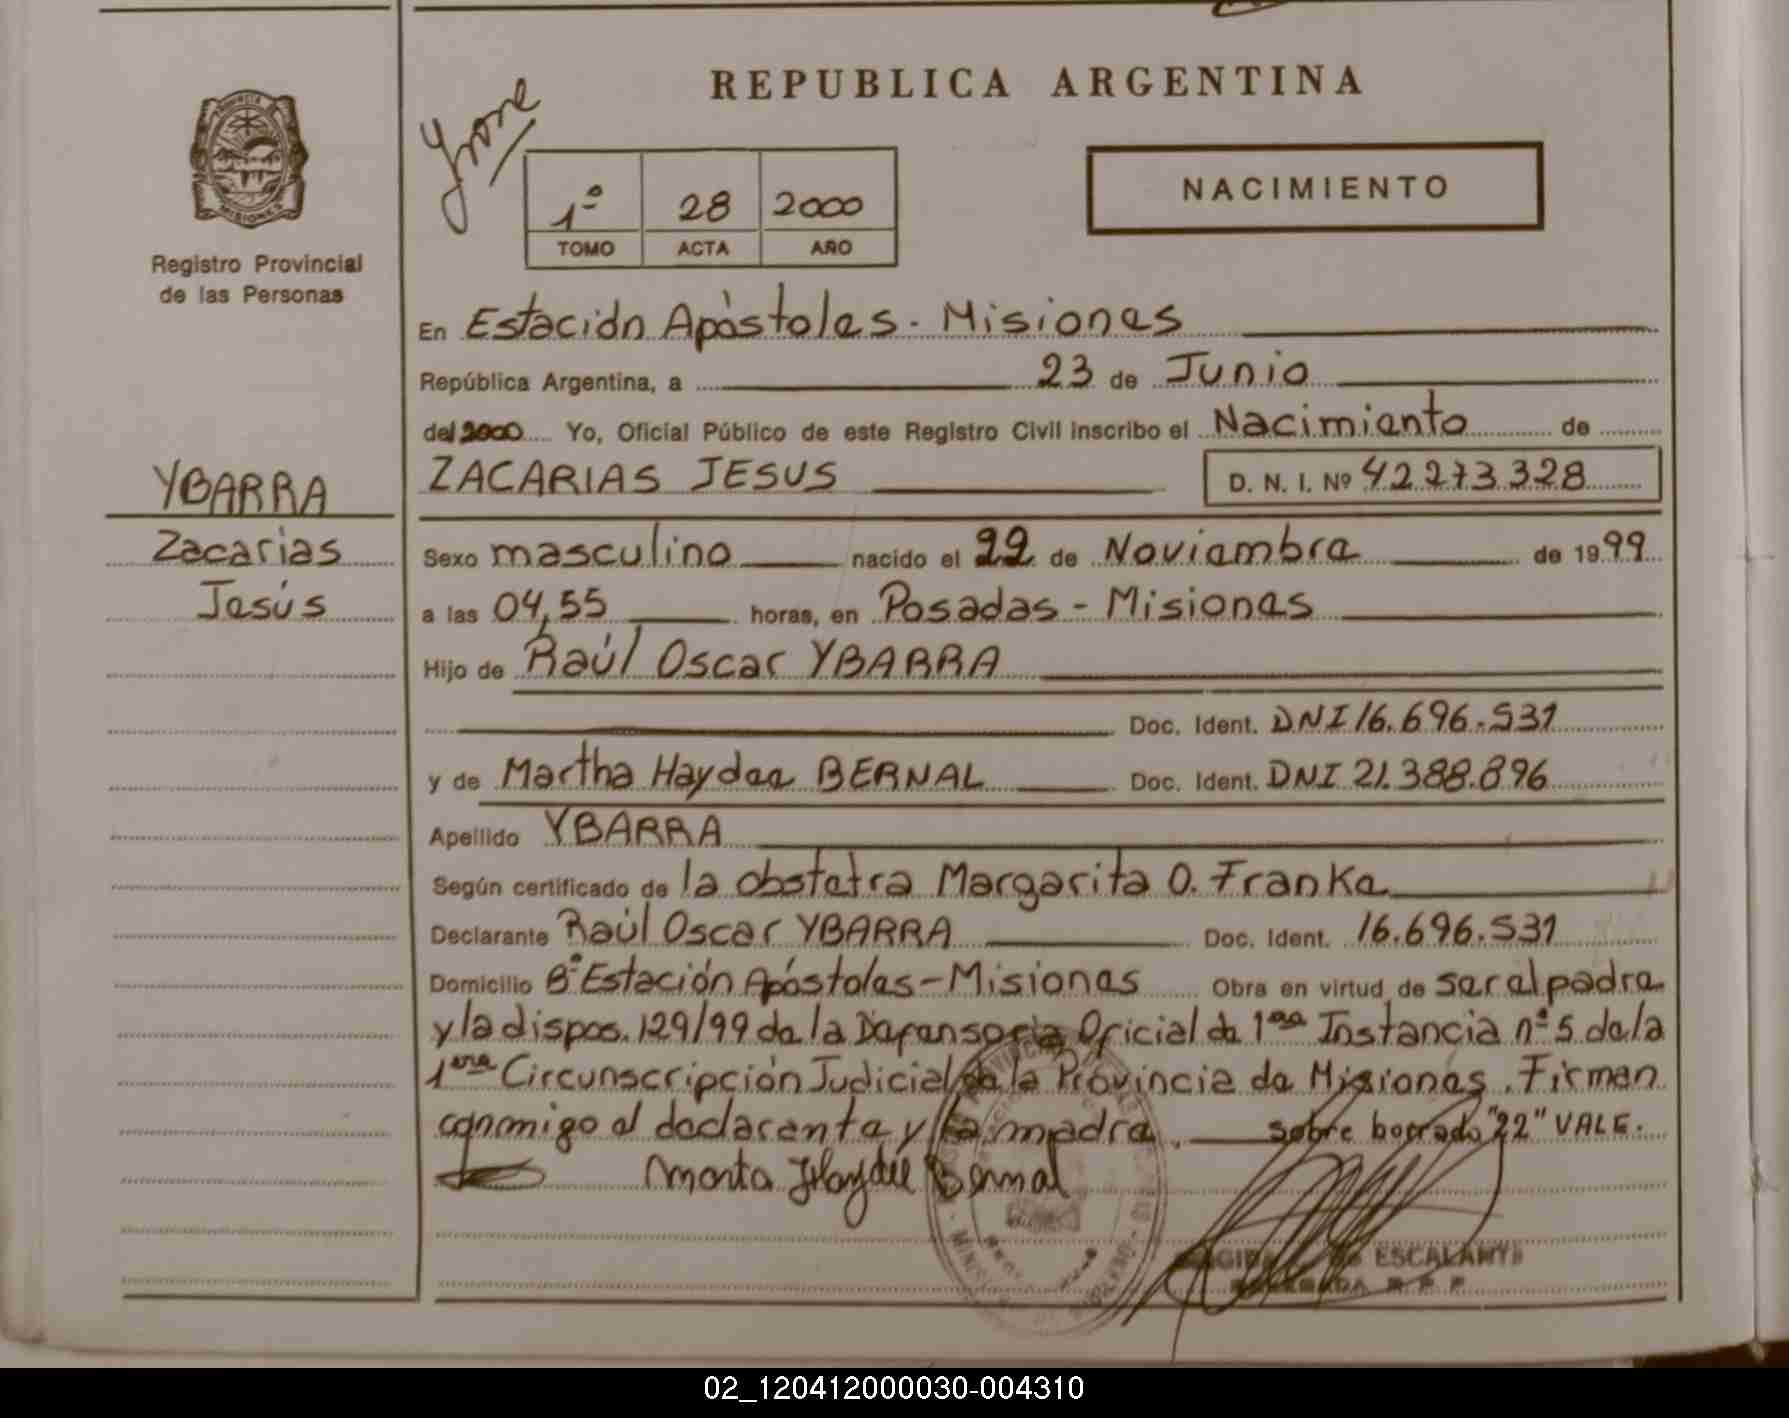 REPUBLICA ARGENTINA
NACIMIENTO
1º 28 2000
TOMO ACTA AÑO
PROVINCIA
MISIONES
Registro Provincial
de las Personas
YBARRA
Zacarias
Jesús
En Estación Apóstoles - Misiones
República Argentina, a 23 de Junio
del 2000 Yo, Oficial Público de este Registro Civil inscribo el Nacimiento de
ZACARIAS JESUS D. N. I. Nº 42273328
Sexo masculino nacido el 22 de Noviembre de 1999
a las 04,55 horas, en Posadas - Misiones
Hijo de Raúl Oscar YBARRA
Doc. Ident. DNI 16.696.531
y de Martha Haydee BERNAL Doc. Ident. DNI 21.388.896
Apellido YBARRA
Según certificado de la obstetra Margarita O. Franke
Declarante Raúl Oscar YBARRA Doc. Ident. 16.696.531
Domicilio Bº Estación Apóstoles - Misiones Obra en virtud de ser el padre
y la dispos. 129/99 de la Defensoría Oficial de 1era Instancia nº 5 de la
1era Circunscripción Judicial de la Provincia de Misiones. Firman
conmigo el declarante y la madre. sobre borrado "22" VALE.
Marta Haydee Bernal
ESCALANTE
02_120412000030-004310